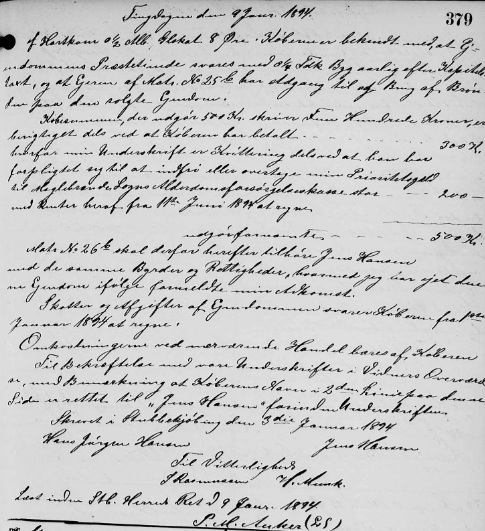 Tingdagen den 9 Janr. 1894.
379
af Hartkorn 0 1/2 Alb. Glskat 8 Øre. Køberen er bekendt med, at Ej-
endommens Præstetiende svares med 0 1/2 Fdk Byg aarlig efter Kapitels-
taxt, og at Ejeren af Matr. No 25 b har Adgang til af Brug af Brøn-
den paa den solgte Ejendom.
Købesummen, der udgør 500 Kr. skriver Fem Hundrede Kroner, er
berigtiget dels ved at Køberen har betalt - - - - 300 Kr.
hvorfor min Underskrift er Kvittering dels ved at han har
forpligtet sig til at indfri eller overtage min Prioritetsgæld
til Maglebrænde Sogns Alderdomsforsørgelseskasse stor - - 200 -
med Renter heraf fra 11te Juni 1894 at regne
udgør fornævnte - - - 500 Kr.
Matr. No 26 b skal derfor herefter tilhøre Jens Hansen
med de samme Byrder og Rettigheder, hvormed jeg har ejet den-
ne Ejendom ifølge formeldte min Adkomst.
Skatter og Afgifter af Ejendommen svarer Køberen fra 1ste
Januar 1894 at regne.
Omkostningerne ved nærværende Handel bæres af Køberen
Til Bekræftelse med vore Underskrifter i Vidners Overværel-
se, med Bemærkning at Køberens Navn i 2den Linie paa denne
Side er rettet til "Jens Hansen" forinden Underskriften
Skrevet i Stubbekjøbing den 3die Januar 1894
Hans Jørgen Hansen Jens Hansen
Til Vitterlighed
Rasmussen Munk.
Læst inden Stb. Herreds Ret d 9 Janr. 1894.
(LS)